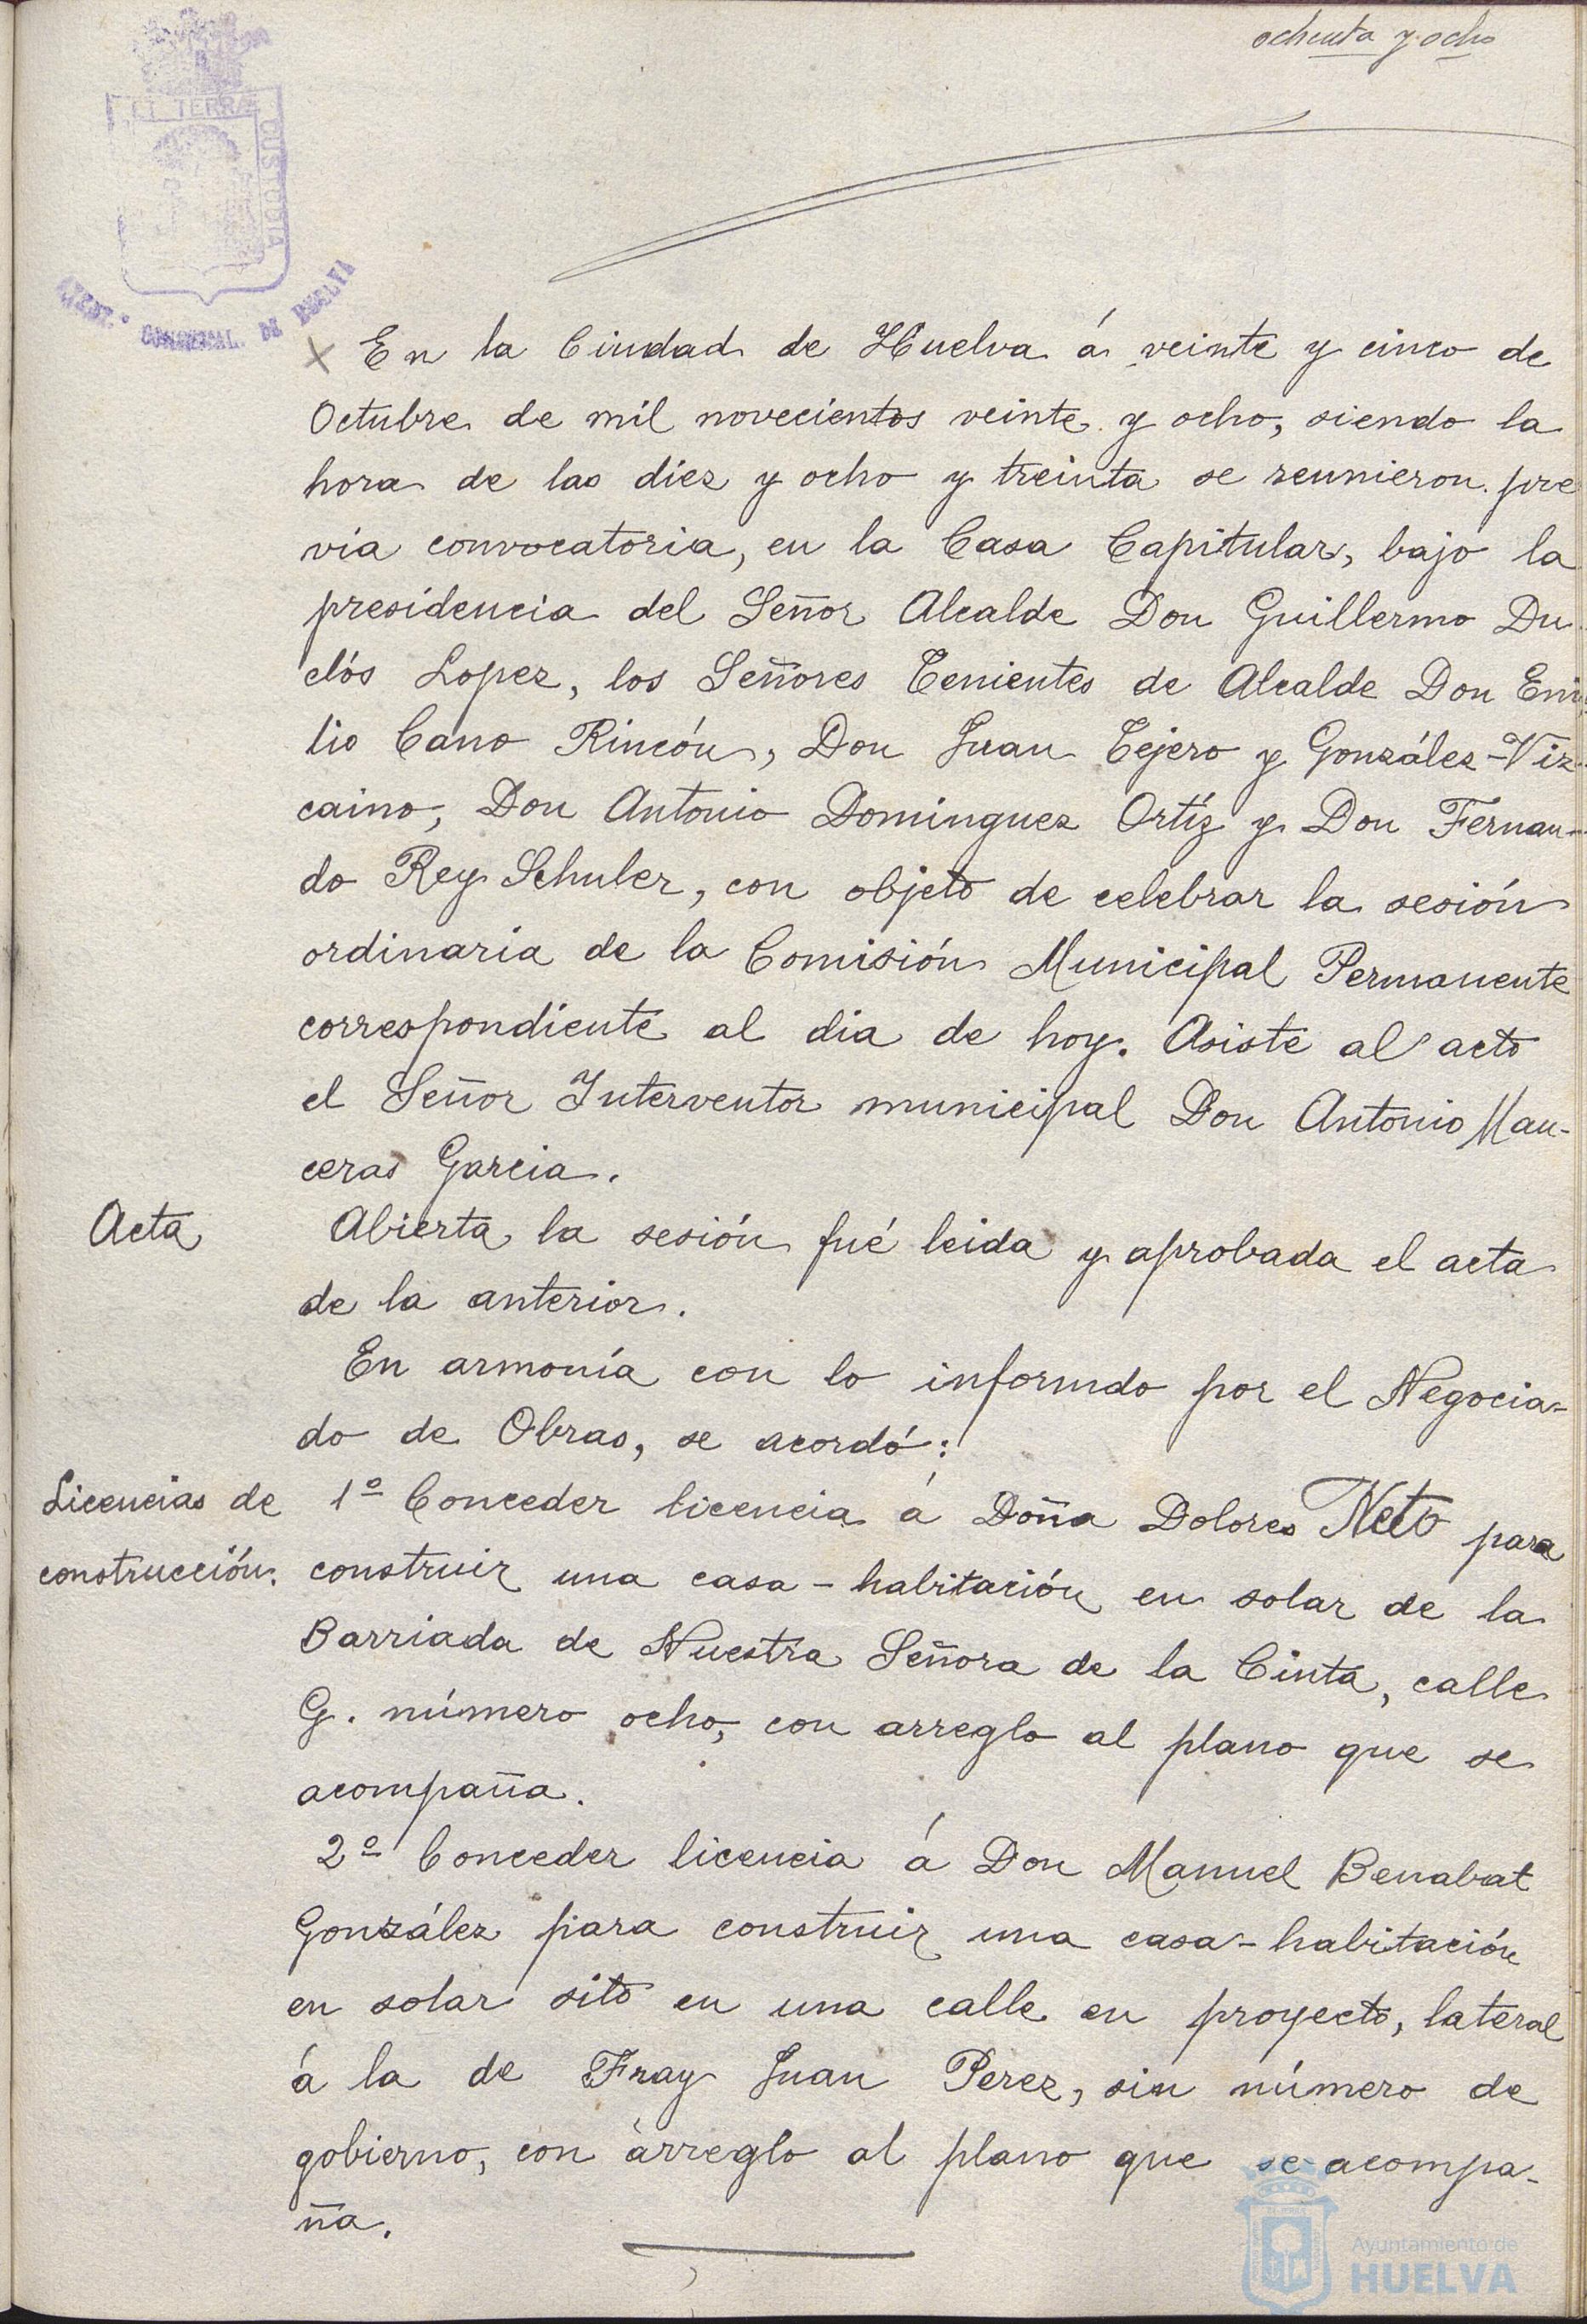 ochenta y ocho
ET TERRAE
CUSTODIA
AYUNT.º CONSTITUCIONAL DE HUELVA
En la Ciudad de Huelva á veinte y cinco de
Octubre de mil novecientos veinte y ocho, siendo la
hora de las diez y ocho y treinta se reunieron pre
via convocatoria, en la Casa Capitular, bajo la
presidencia del Señor Alcalde Don Guillermo Du-
clós Lopez, los Señores Tenientes de Alcalde Don Emi-
lio Cano Rincón, Don Juan Tejero y González-Viz-
caino, Don Antonio Dominguez Ortíz y Don Fernan-
do Rey Schuler, con objeto de celebrar la sesión
ordinaria de la Comisión Municipal Permanente
correspondiente al dia de hoy. Asiste al acto
el Señor Interventor municipal Don Antonio Man-
ceras Garcia.
Acta
Abierta la sesión fué leida y aprobada el acta
de la anterior.
En armonía con lo informdo por el Negocia-
do de Obras, se acordó:
Licencias de
construcción.
1º Conceder licencia á Doña Dolores Neto para
construir una casa-habitación en solar de la
Barriada de Nuestra Señora de la Cinta, calle
G. número ocho, con arreglo al plano que se
acompaña.
2º Conceder licencia á Don Manuel Benabat
González para construir una casa-habitación
en solar sito en una calle en proyecto, lateral
á la de Fray Juan Perez, sin número de
gobierno, con arreglo al plano que se acompa-
ña.
Ayuntamiento de
HUELVA